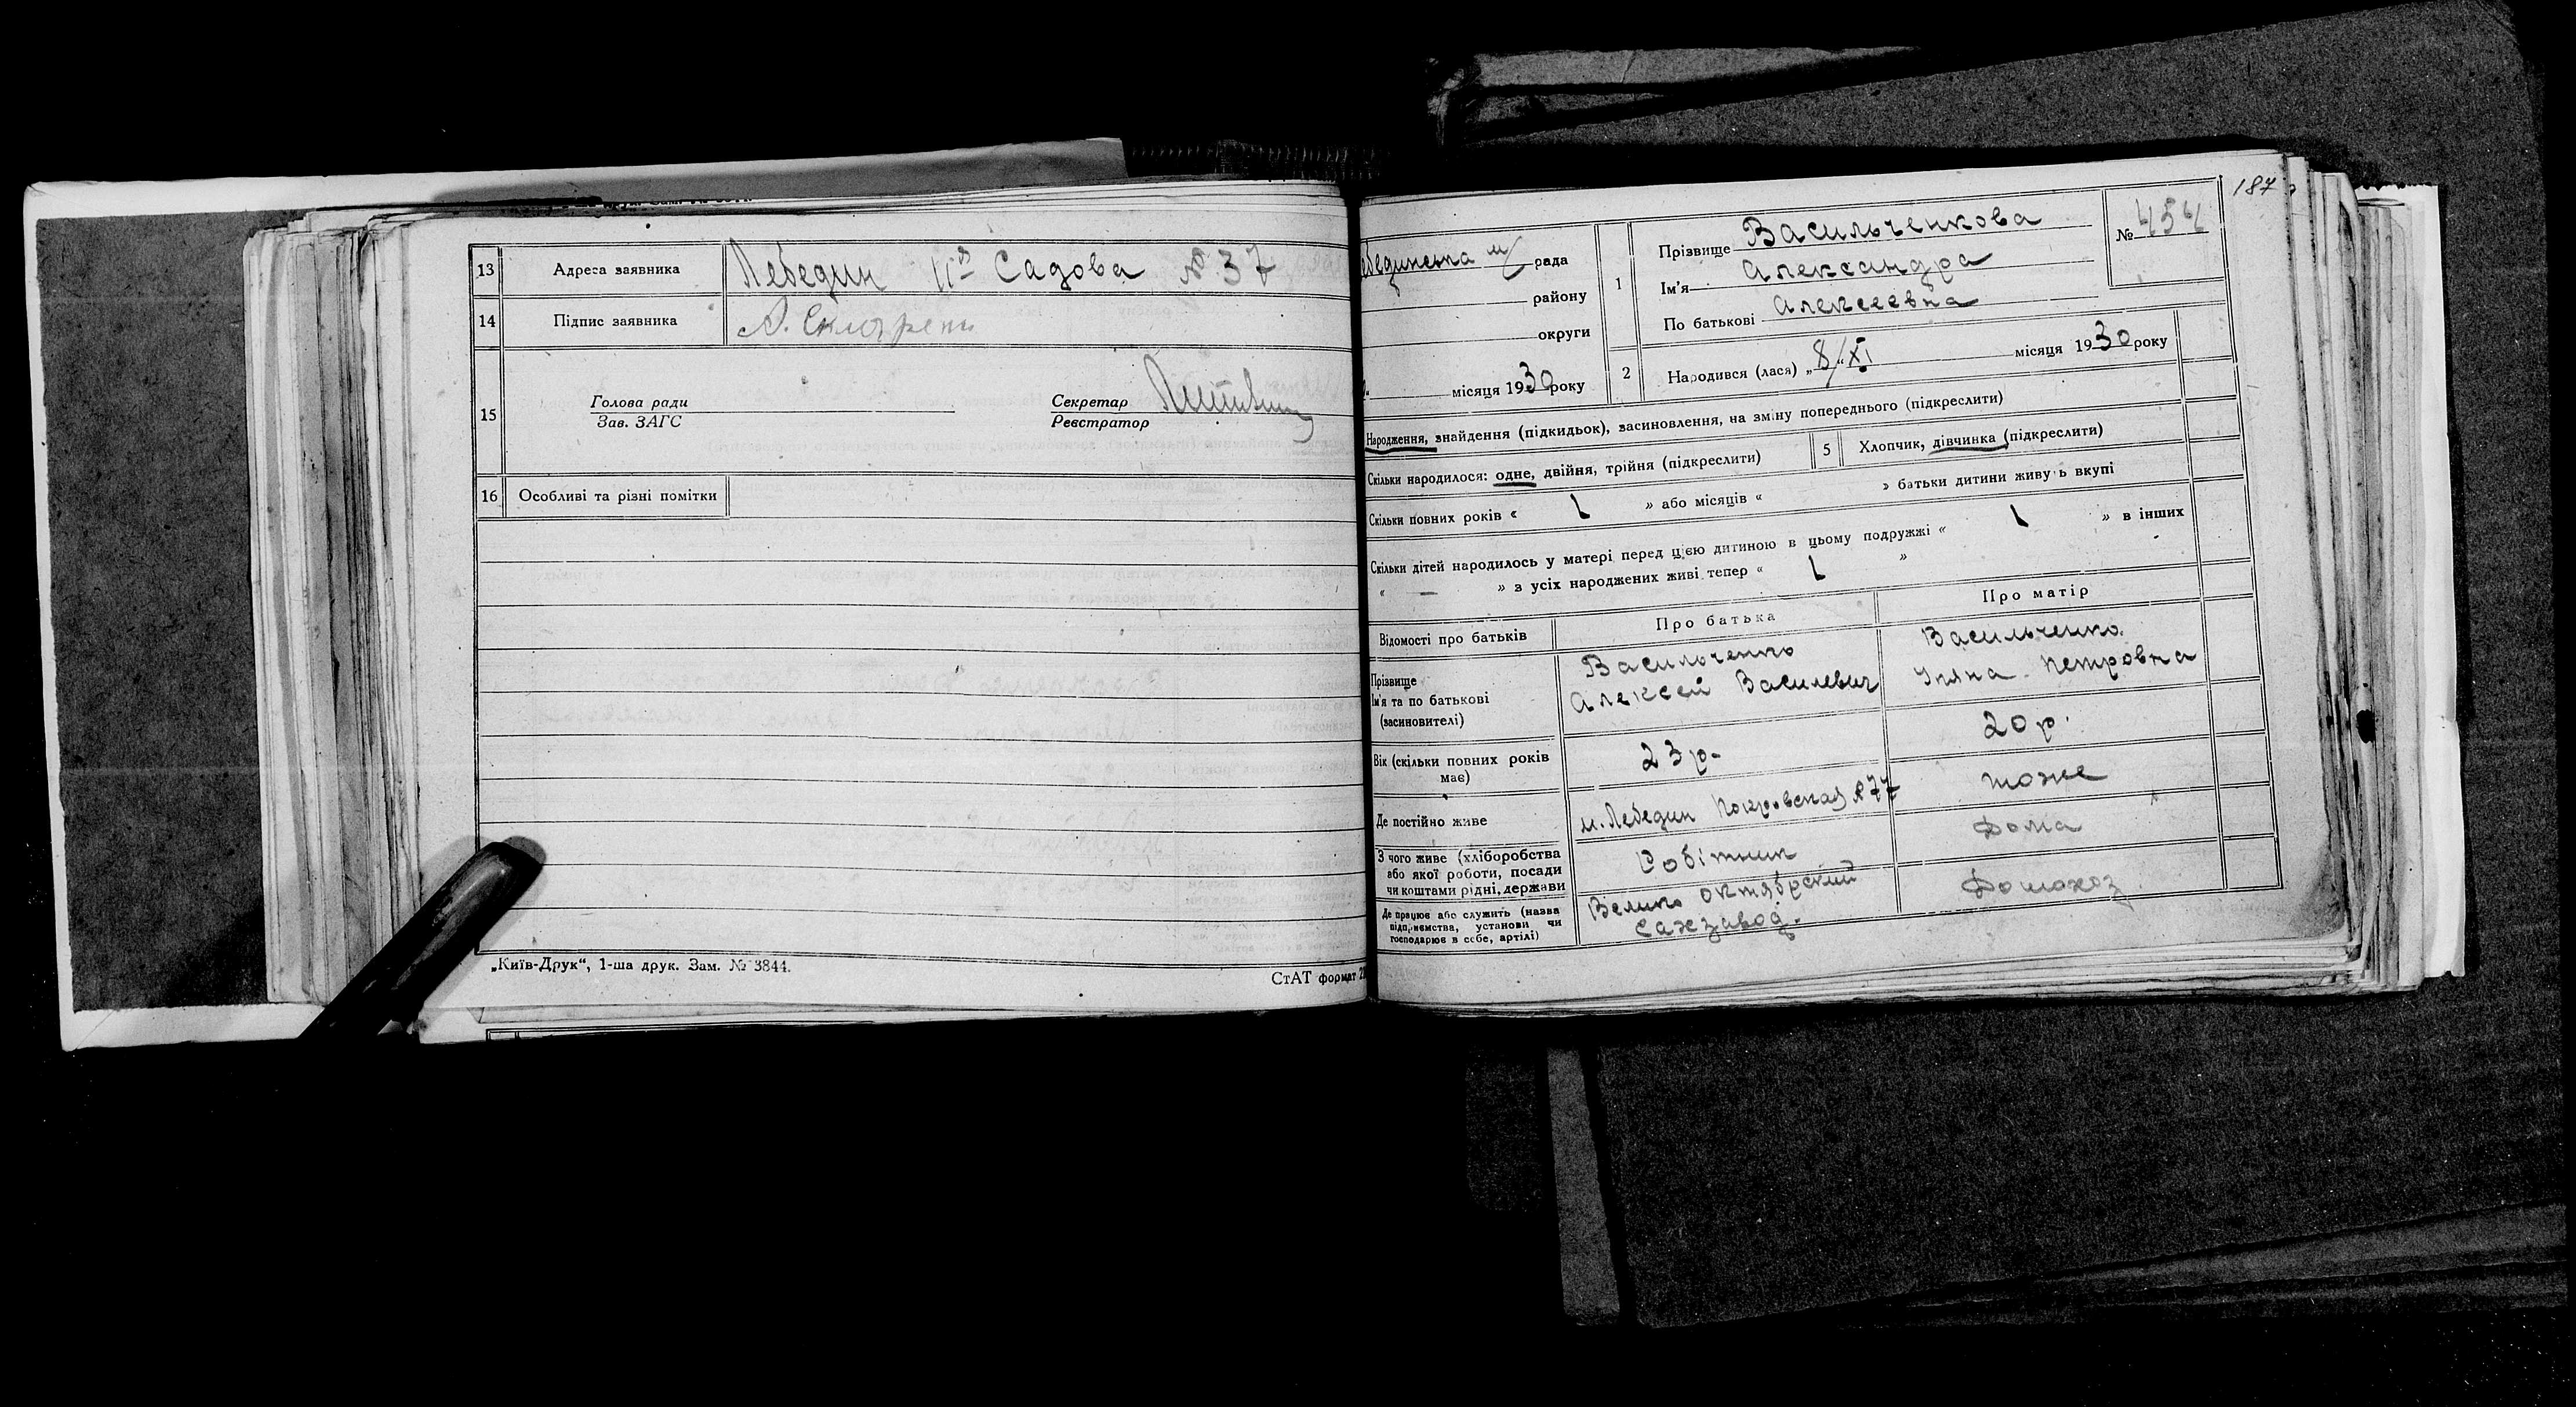 13 Адреса заявника Лебедин ІІя Садова № 37
14 Підпис заявника
15 Голова ради
Зав. ЗАГС
Секретар
Реєстратор
16 Особливі та різні помітки
„Київ-Друк“, 1-ша друк. Зам. № 3844.
СтАТ формат
187
бединська м/ рада
району
округи
місяця 1930 року
1 Прізвище Васильченкова
Ім'я Александра
По батькові Алексеевна
№ 454
2 Народився (лася) „ 8/XI місяця 1930 року
Народження, знайдення (підкидьок), засиновлення, на зміну попереднього (підкреслити)
Скільки народилося: одне, двійня, трійня (підкреслити) 5 Хлопчик, дівчинка (підкреслити)
Скільки повних років « 1 » або місяців « » батьки дитини живуть вкупі
Скільки дітей народилось у матері перед цією дитиною в цьому подружжі « 1 » в інших
« — » з усіх народжених живі тепер « 1 »
Відомості про батьків Про батька Про матір
Прізвище
Ім'я та по батькові
(засиновителі)
Васильченко
Алексей Василевич
Васильченко
Уляна Петровна
Вік (скільки повних років
має)
23 р.
20 р.
Де постійно живе м. Лебедин Покровская № 77 тоже
З чого живе (хліборобства
або якої роботи, посади
чи коштами рідні, держави
Собітник
Дома
Де працює або служить (назва
підприємства, установи чи
господарює в себе, артілі)
Велико октябрский
сахзавод.
Домохоз